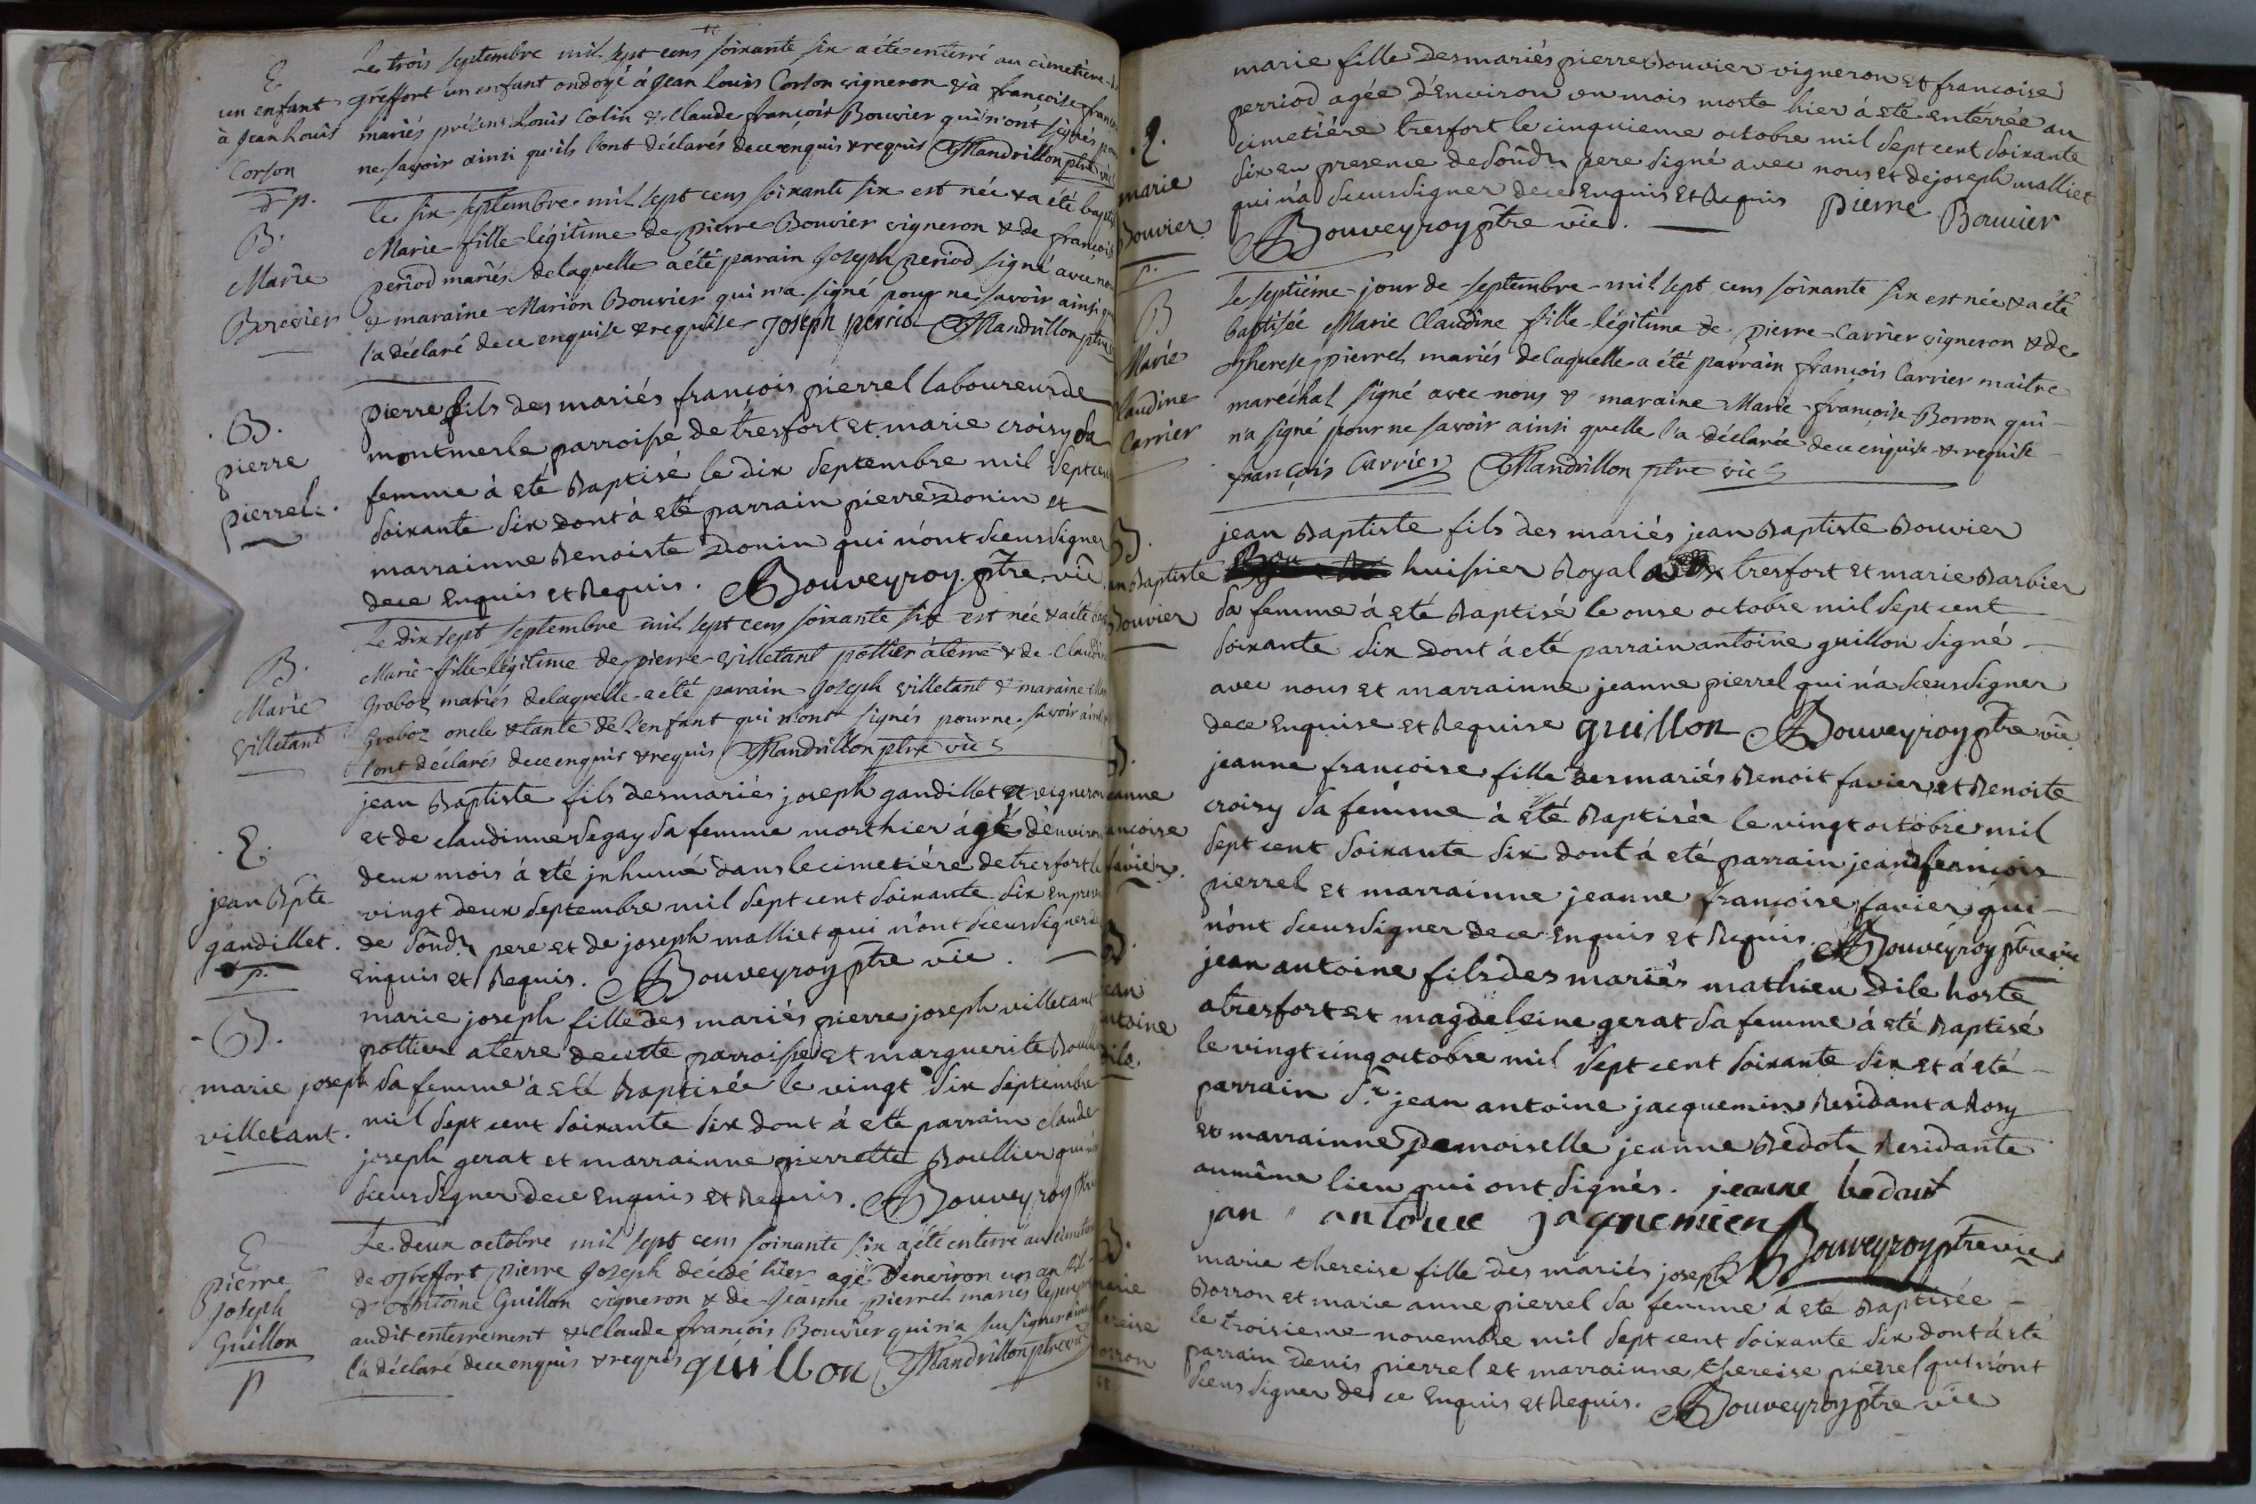 E
un enfant
à Jean Louis
Corson
d p.
Le trois septembre mil sept cens soixante six a été enterré au cimetière
greffort un enfant ondoyé à Jean Louis Corson vigneron & à françoise
mariés présent Louis Colin & Claude françois Bouvier qui n'ont signés
ne savoir ainsi qu'ils l'ont déclarés de ce enquis & requis Mandrillon ptre vic
B.
Marie
Bouvier
Le six septembre mil sept cens soixante six est née & a été
Marie fille légitime de pierre Bouvier vigneron & de
period mariés de laquelle a été parain Joseph period signé avec
& maraine Marion Bouvier qui n'a signé pour ne savoir ainsi
l'a déclaré de ce enquise & requise Joseph perriod Mandrillon ptre
.B.
pierre
pierrel.
pierre fils des mariés françois pierrel laboureur de
montmerle parroise de tresfort et marie croisy sa
femme à eté Baptisé le dix septembre mil sept
soixante six dont à eté parrain pierre Donin et
marrainne Benoiste Donin qui n'ont sceu signer
de ce Enquis et Requis. Bouveyroy ptre vic
B.
Marie
villetant
Le dix sept septembre mil sept cens soixante six est née & a été
Marie fille légitime de pierre villetant pottier à terre & de
Groboz mariés de laquelle a été parain Joseph villetant & maraine
Groboz oncle & tante de l'enfant qui n'ont signés pour ne savoir
l'ont déclarés de ce enquis & requis Mandrillon ptre vic
.E.
jean Bpte
gandillet.
p.
jean Baptiste fils des mariés joseph gandillet et vigneron
et de claudinne Segay sa femme mort hier ágé d'environ
deux mois á eté jnhumé dans le cimetiére de tresfort le
vingt deux septembre mil sept cent soixante six en
de sondt pere et de joseph malliet qui n'ont sceu signer
Enquis et Requis. Bouveyroy ptre vic.
.B.
marie joseph
villetant.
marie joseph fille des mariés pierre joseph villetant
pottier a terre de cette parroise et marguerite
sa femme à eté Baptisée le vingt six septembre
mil sept cent soixante six dont à eté parrain claude
joseph gerat et marrainne pierrette Boullier qui
sceu signer de ce Enquis et Requis. Bouveyroy
E
pierre
joseph
Guillon
p
Le deux octobre mil sept cens soixante six a été enterré au
de Treffort pierre Joseph décédé hier agé d'environ un an
d'Antoine Guillon vigneron & de Jeanne pierrel mariés
audit enterrement & Claude françois Bouvier qui n'a su signer
l'a déclaré de ce enquis & requis guillon Mandrillon ptre vic
.E.
marie
Bouvier
p.
marie fille des mariés pierre Bouvier vigneron et francoise
perriod agée d'Environ un mois morte hier á eté enterrée au
cimetiére tresfort le cinquieme octobre mil sept cent soixante
six en presence de sondt pere signé avec nous et de joseph malliet
qui n'a sceu signer de ce Enquis et Requis pierre Bouvier
Bouveyroy ptre vic.
B
Marie
Claudine
Carrier
Le septiéme jour de septembre mil sept cens soixante six est née & a été
baptisée Marie Claudine fille légitime de pierre Carrier vigneron & de
Therese pierrel mariés de laquelle a été parrain françois Carrier maitre
maréchal signé avec nous & maraine Marie françoise Borron qui
n'a signé pour ne savoir ainsi quelle l'a déclarée de ce enquise & requise
françois Carrier Mandrillon ptre vic
B.
an Baptiste
Bouvier
jean Baptiste fils des mariés jean Baptiste Bouvier
huissier Royal tresfort et marie Barbier
sa femme á eté Baptisé le onse octobre mil sept cent
soixante six dont á eté parrain antoine guillon signé
avec nous et marrainne jeanne pierrel qui n'a sceu signer
de ce Enquise et Requise guillon Bouveyroy ptre vic
B.
eanne
ancoise
favier.
jeanne francoise fille des mariés Benoit favier et Benoite
croisy sa femme à eté Baptisée le vingt octobre mil
sept cent soixante six dont á eté parrain jean francois
pierrel et marrainne jeanne francoise favier qui
n'ont sceu signer de ce Enquis et Requis. Bouveyroy ptre vic
B
ean
ntoine
dile
jean antoine fils des mariés mathieu Dile hoste
a tresfort et magdeleine gerat sa femme á eté Baptisé
le vingt cinq octobre mil sept cent soixante six et á eté
parrain sr jean antoine jacquemin Residant a Rosy
et marrainne Demoiselle jeanne Bedot Residante
au même lieu qui ont signés. jeanne bedaut
jan antoine jaquemien Bouveyroy ptre vic
B.
marie
hereise
orron
marie thereise fille des mariés joseph
Borron et marie anne pierrel sa femme á eté Baptisée
le troisieme novembre mil sept cent soixante six dont á eté
parrain Denis pierrel et marrainne thereise pierrel qui n'ont
sceu signer de ce Enquis et Requis. Bouveyroy ptre vic